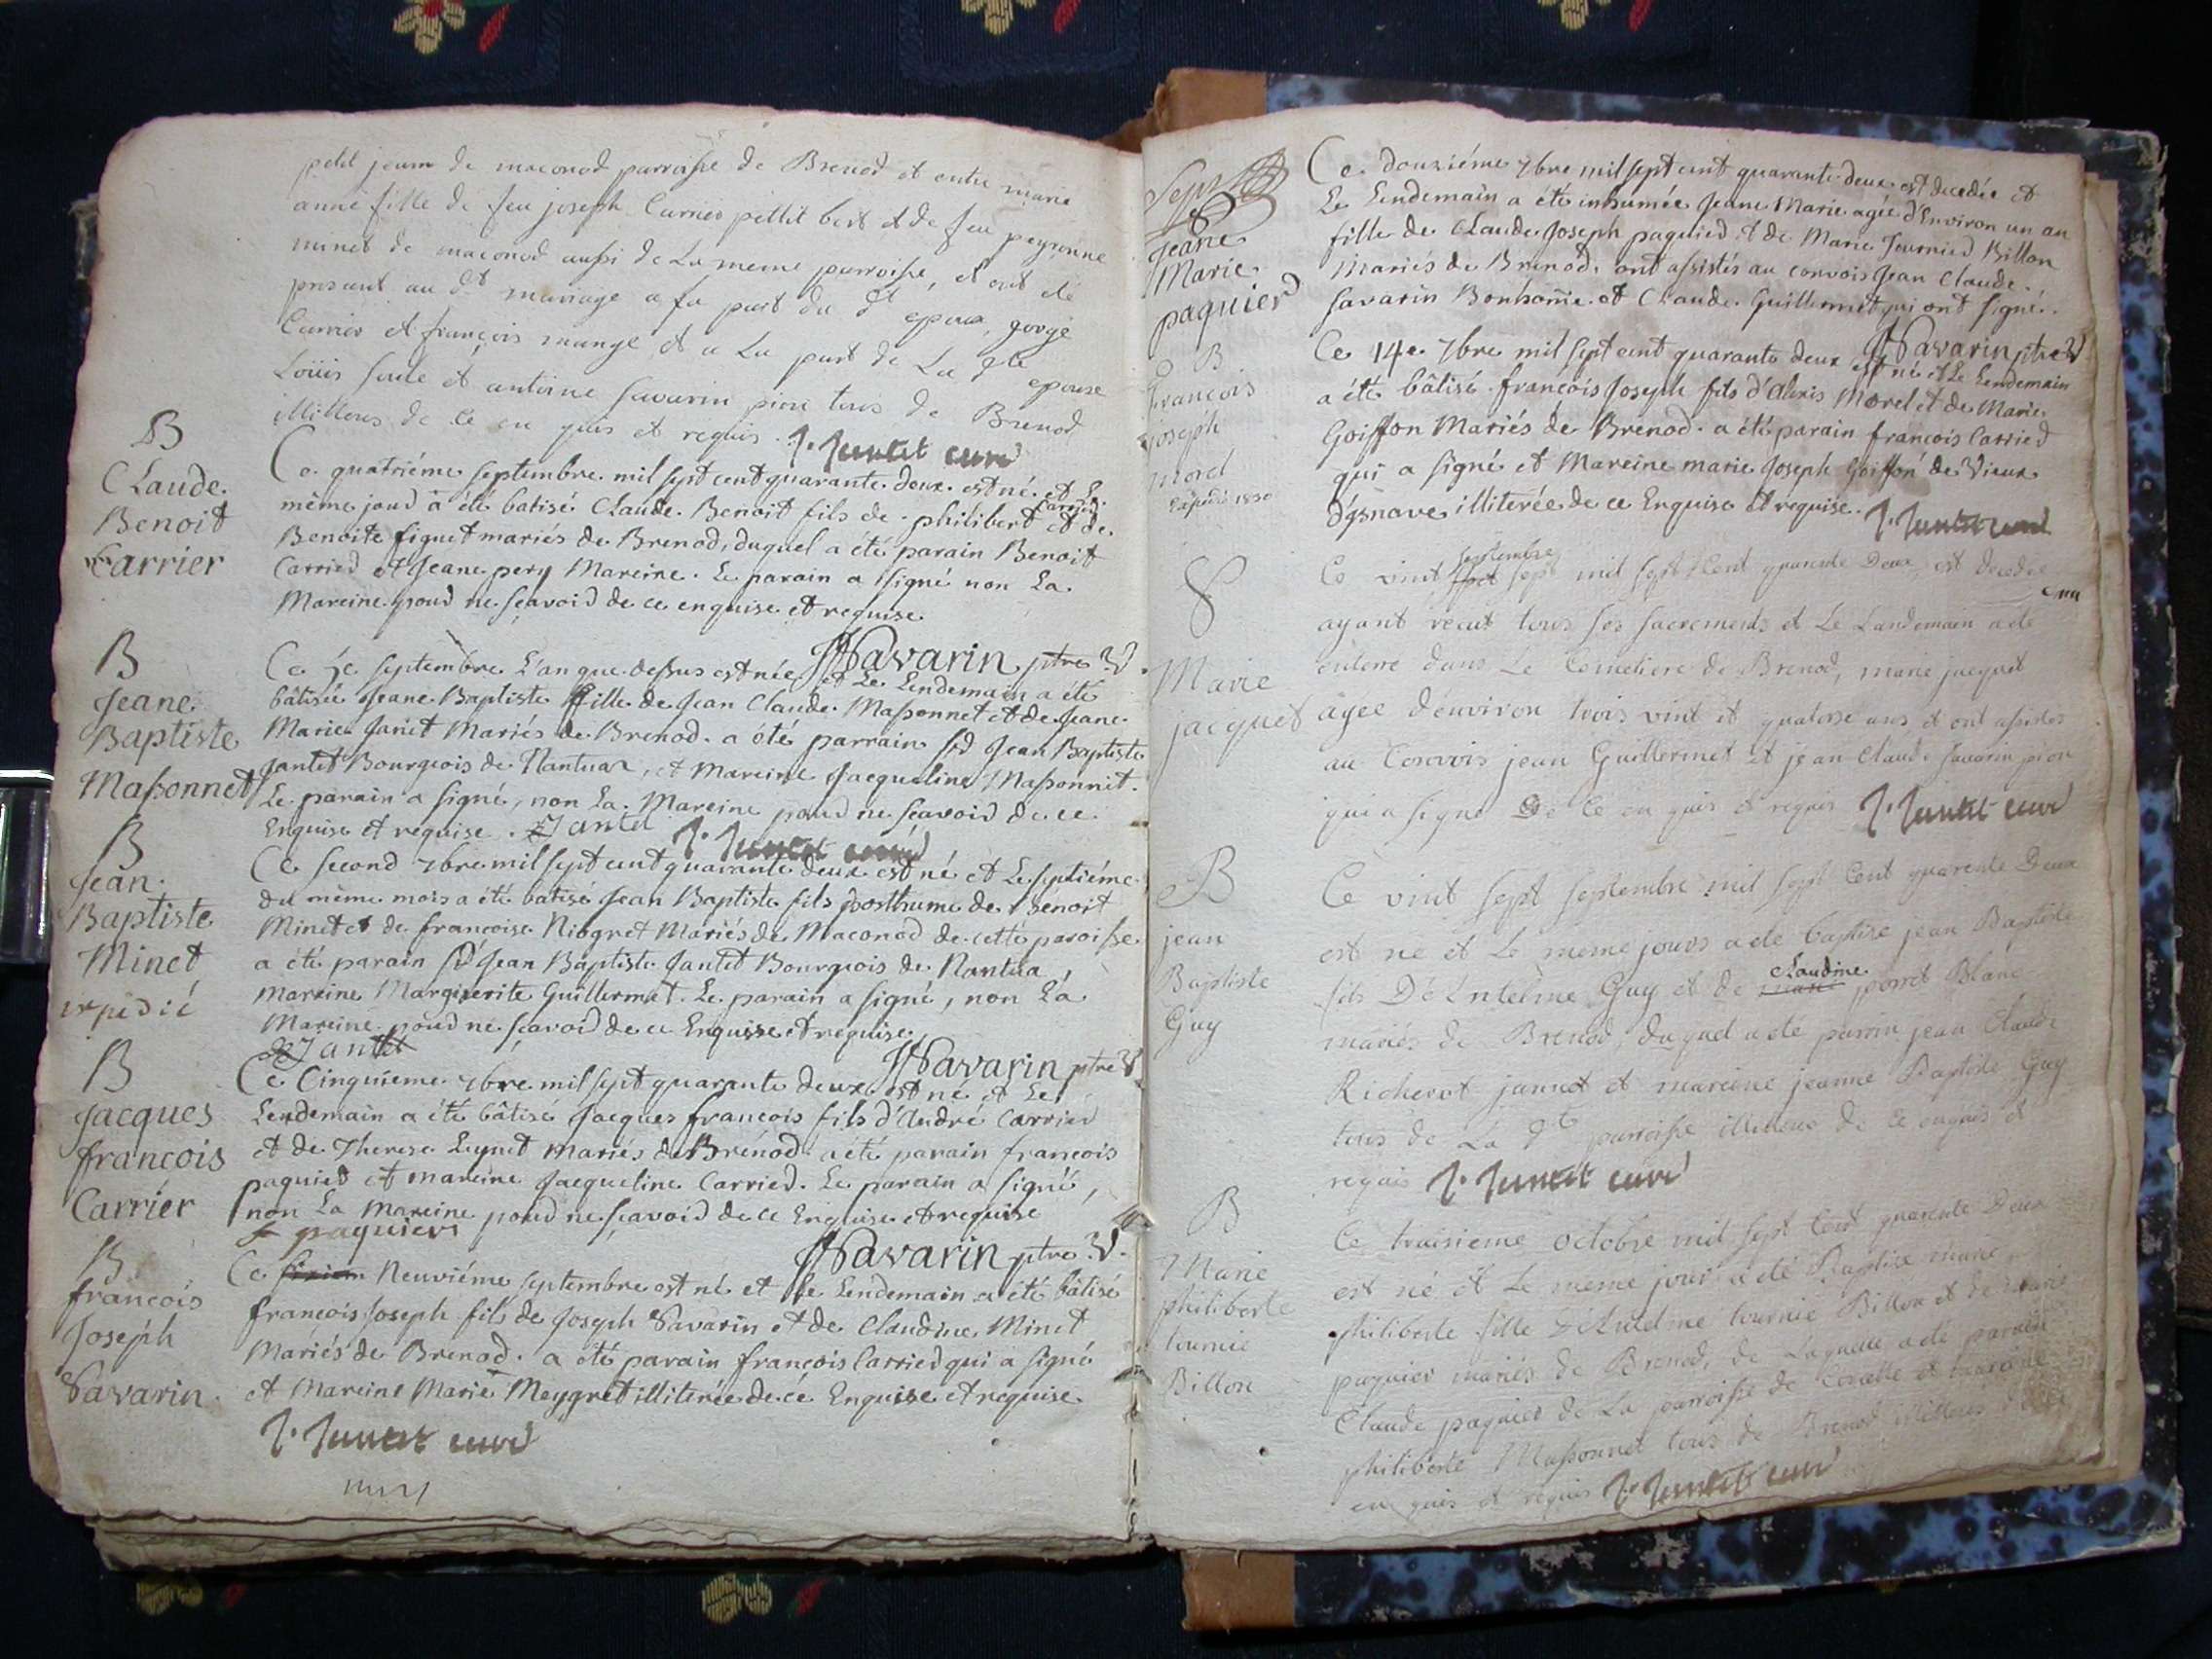 petit jean de maconod parroisse de Brenod et entre marie
anne fille de feu joseph Carrier pettit bert et de feu peyronne
minet de maconod aussi de La meme parroisse, et ont été
present au dt mariage a la part du dt epoux, george
Carrier et françois mange et a La part de La dte epouse
Loüis Soulé et antoine Savarin pion tous de Brenod
illitteres de Ce en quis et requis. J. Jantet curé
B
Claude
Benoit
Carrier
Ce quatriéme septembre mil sept cent quarante deux est né et Le
même jour a été batisé Claude Benoit fils de philibert Carrier et de
Benoite figuet mariés de Brenod, duquel a été parain Benoit
Carrier et Jeane pery Mareine. Le parain a signé non La
Mareine pour ne sçavoir de ce enquise et requise.
JSavarin ptre V.
B
Jeane
Baptiste
Massonnet
Ce 7e septembre L'an que dessus est née et Le Lendemain a été
bâtisée Jeane Baptiste fille de Jean Claude Massonnet et de Jeane
Marie Janet Mariés de Brenod. a été parrain Sr Jean Baptiste
Jantet Bourgeois de Nantua, et Mareine Jacqueline Massonnet.
Le parain a signé, non La Mareine pour ne sçavoir de ce
Enquise et requise. Jantet J. Jantet curé
B
Jean
Baptiste
Minet
expedié
Ce second 7bre mil sept cent quarante deux est né et Le septiéme
du même mois a été batisé Jean Baptiste fils posthume de Benoit
Minet et de francoise Niogret Mariés de Maconod de cette paroisse.
a été parain Sr Jean Baptiste Jantet Bourgeois de Nantua,
Mareine Margueritte Guillermet. Le parain a signé, non La
Mareine pour ne sçavoir de ce Enquise et requise.
Jantet JSavarin ptre V.
B
Jacques
françois
Carrier
Ce Cinquieme 7bre mil sept quarante deux est né et Le
Lendemain a été bâtisé Jacques françois fils d'André Carrier
et de Therese Leynet Mariés de Brénod. a été parain francois
paquier et mareine Jacqueline Carrier. Le parain a signé,
non La Mareine pour ne sçavoir de ce Enquise et requise
f paquier
JSavarin ptre V.
B
françois
Joseph
Savarin.
Ce Neuviéme septembre est né et le Lendemain a été bâtisé
françois Joseph fils de Joseph Savarin et de Claudine Minet
Mariés de Brenod. a été parain françois Carrier qui a signé
et Mareine Marie Meygret illiterée de ce Enquise et requise.
J. Jantet curé
Jeane
Marie
paquier
Ce douziéme 7bre mil sept cent quarante deux est decedée et
Le Lendemain a été inhumée Jeane Marie agée d'Environ un an
fille de Claude Joseph paquier et de Marie Tournier Billon
Mariés de Brenod. ont assistés au convois Jean Claude
Savarin Bonhome et Claude Guillermet qui ont signé.
JSavarin ptre V
B
francois
joseph
morel
Expedié 1830
Ce 14e 7bre mil sept cent quarante deux est né et Le Lendemain
a été bâtisé françois Joseph fils d'Alexis Morel et de Marie
Goiffon Mariés de Brenod. a été parain francois Carrier
qui a signé et Mareine marie Joseph Goiffon de Vieux
d'ysnave illiterée de ce Enquise et requise. J. Jantet curé
Marie
jacquet
Ce vint septembre sept mil sept Cent quarente Deux est decedee
ayant recut tous ses sacrements et Le Landemain a été
enterre dans Le Cemetiere de Brenod, marie jacquet
âgee d'environ trois vint et quatorse ans, et ont assistés
au Convois jean Guillermet et jean Claude Savarin pion
qui a signé De Ce en quis et requis J. Jantet curé
B
jean
Baptiste
Guy
Ce vint sept septembre mil sept Cent quarente Deux
est ne et Le meme jours a été baptise jean Baptiste
fils De Antelme Guy et de marie claudine porret Blanc
mariés de Brenod, duquel a été parrin jean Claude
Richerot jannet et mareine jeanne Baptiste Guy
tous de La dte parroisse illitteres de Ce enquis et
requis J. Jantet curé
B
Marie
philiberte
tournie
Billon
Ce troisieme octobre mil sept Cent quarente Deux
est né et Le meme jour a été Baptise marie
philiberte fille d'Antelme tournie Billon et de Marie
paquier mariés de Brenod, de Laquelle a été parain
Claude paquier de La parroisse de Corcelle et mareine
philiberte Massonnet tous de Brenod illitteres de Ce
en quis et requis J. Jantet curé